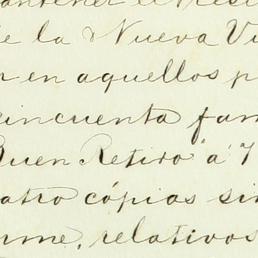 antener el Resi
de la Nueva Vi
en aquellos p
cincuenta fam
Buen Retiro" á 7
atro cópias sin
rme, relativos